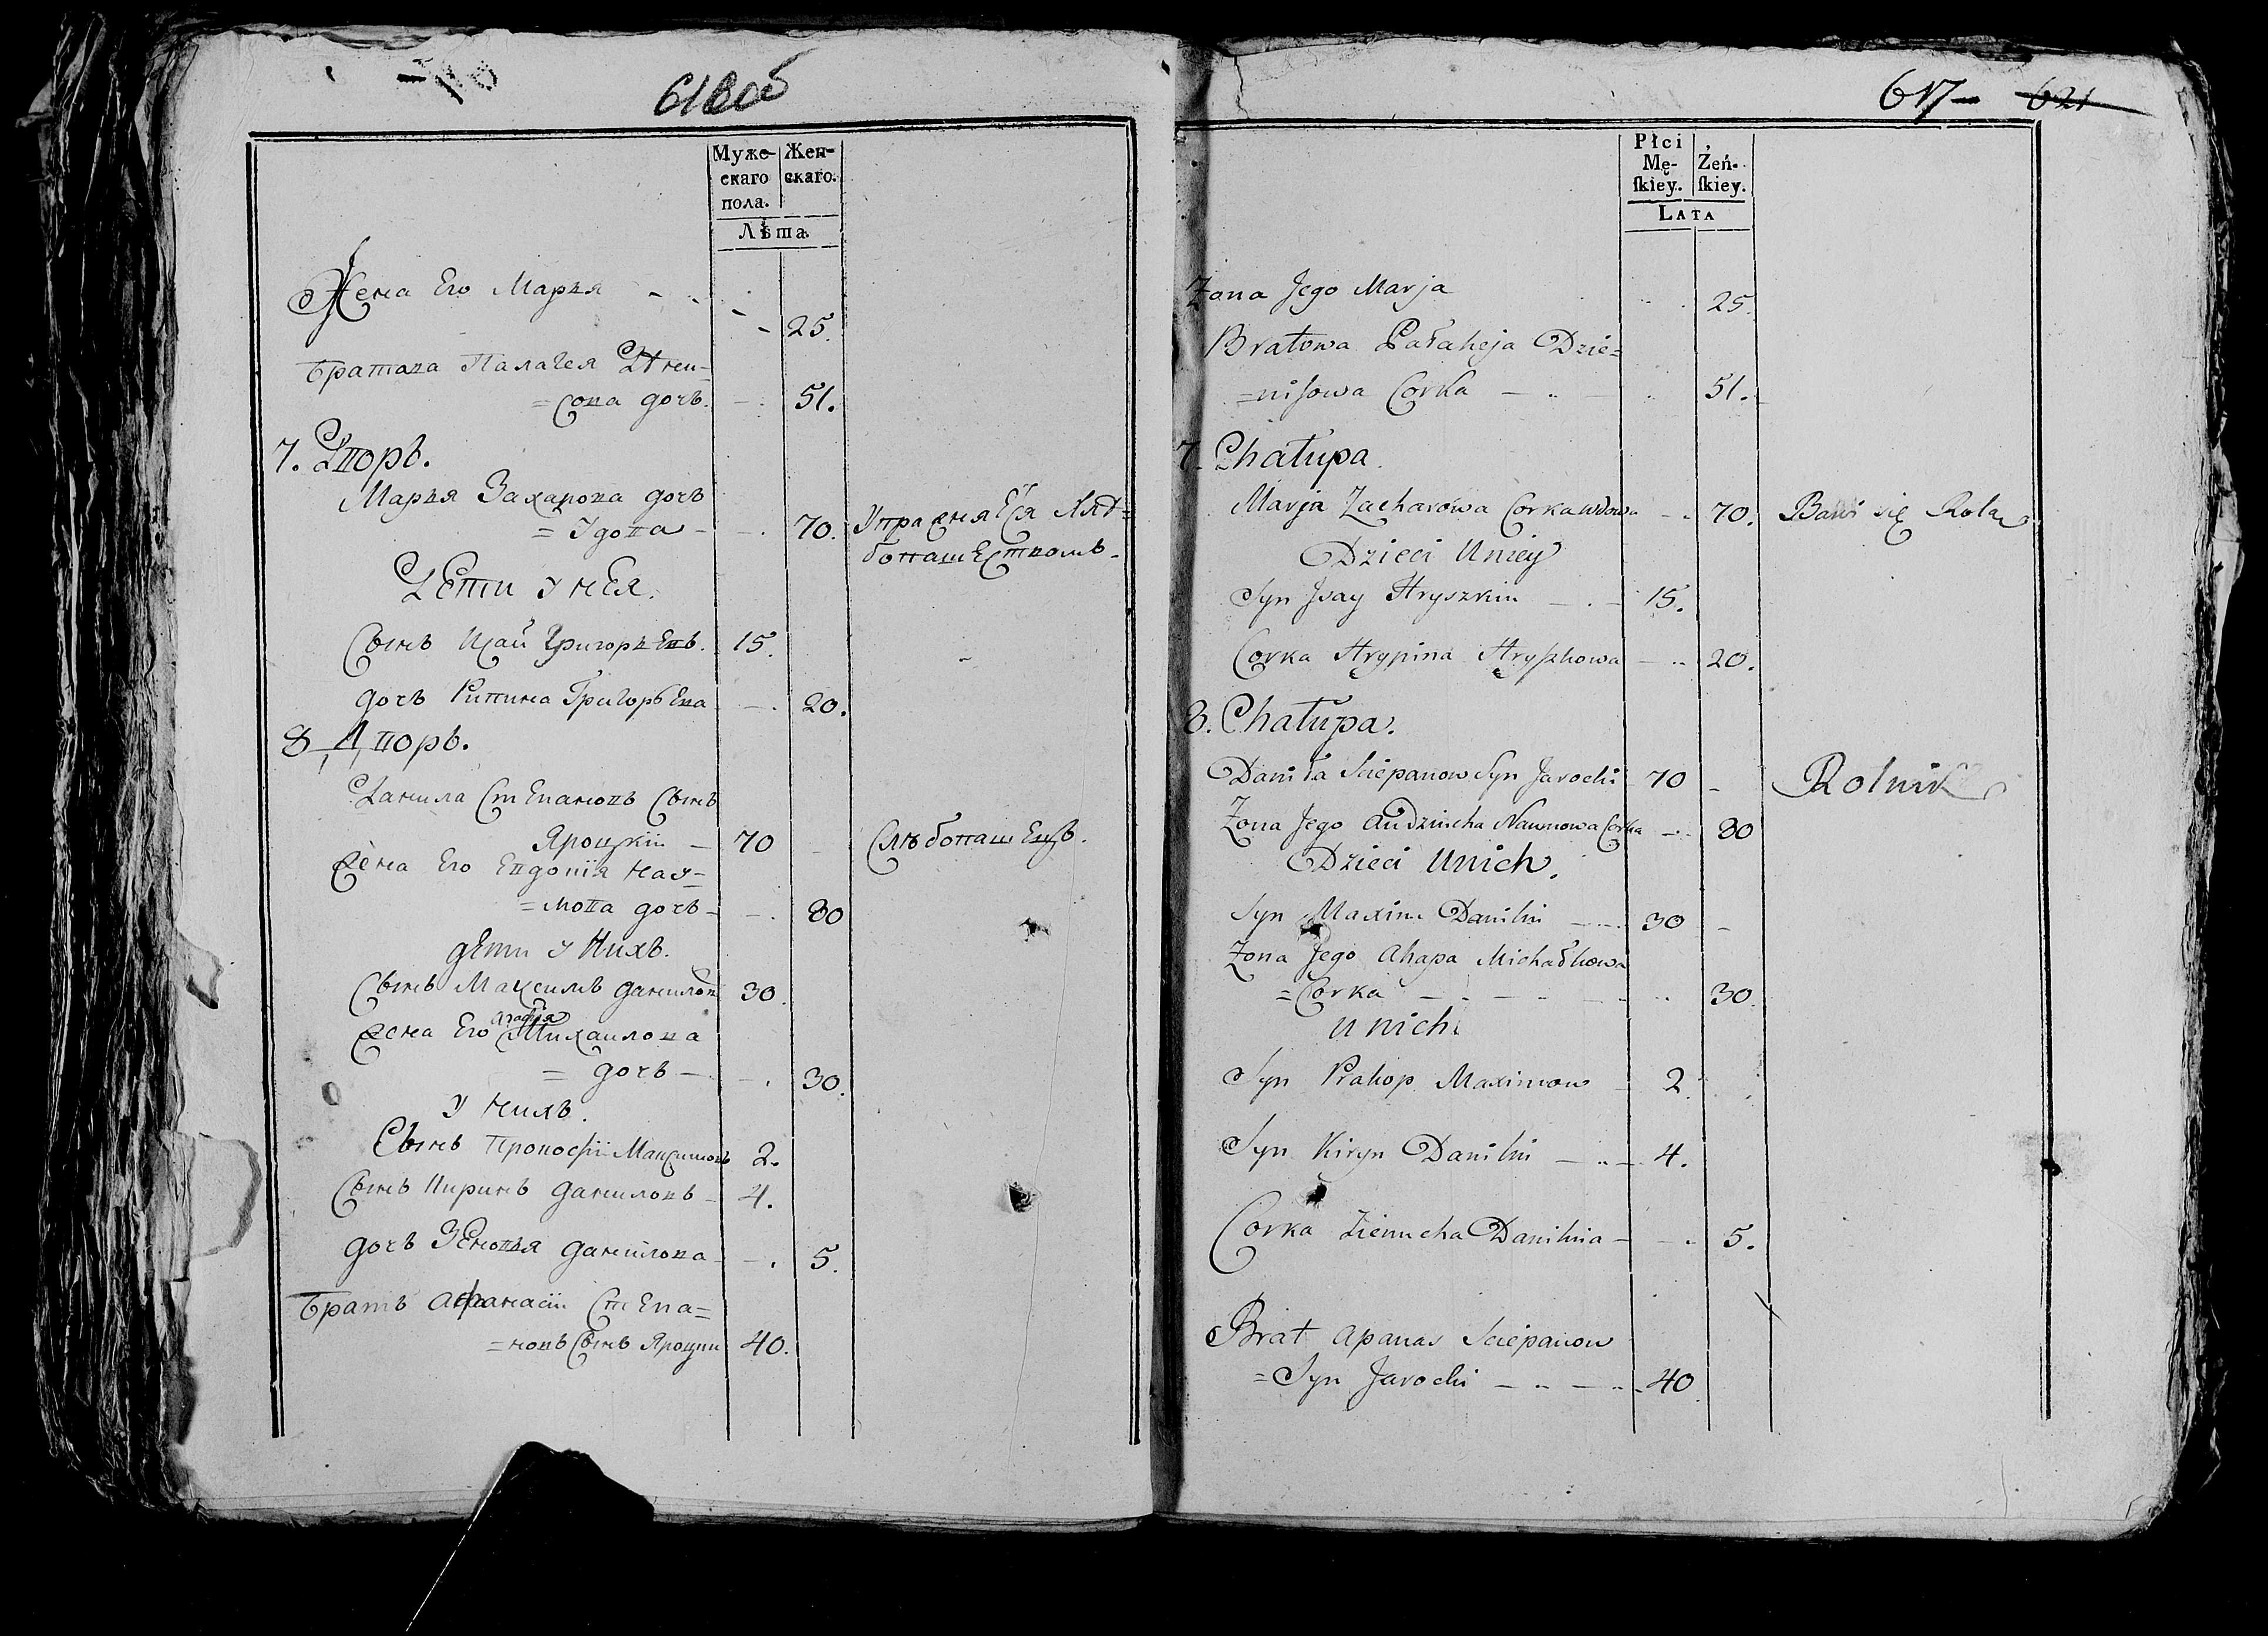 616 об
Муже-
скаго
пола.
Жен-
скаго.
Лѣта.
Жена Его Марья 25.
Братова Палагея Дени-
=сова дочь. 51.
7. Дворъ.
Марья Захарова дочь
= Удова 70. Упражняеся Хлѣ=
бопашествомъ.
Дети У нея.
Сынъ Исай Григорьевъ. 15.
дочь Григорьева 20.
8 Дворъ.
Данила Степановъ Сынъ
Яроцкiи 70 Хлѣбопашецъ.
Жена Его Евдокiя Нау=
=мова дочь 80
дети У Нихъ.
Сынъ Максимъ данилов 30.
Жена Его Агафiя Михаилова
= дочь 30.
У Нихъ.
Сынъ Прокофiи Максимовъ 2.
Сынъ Киринъ даниловъ 4.
дочь Зеновья данилова 5.
Братъ Афанасiи Степа=
=новъ Сынъ Яроцки 40.
617 621
Płci
Mę-
ſkiey.
Żeń-
ſkiey.
Lata
Zona Jego Marja 25.
Bratowa Pałaheja Dzie=
=nisowa Corka 51.
7. Chałupa.
Marja Zacharowa Corka wdowa 70. Bawi się Rolą
Dzieci Uniey
Syn Jsay Hryszkin 15.
Corka Hrypina Hryszkowa 20.
8. Chałupa.
Daniła Sciepanow Syn Jarocki 70 Rolnik
Zona Jego Audziucha Naumowa Corka 80
Dzieci Unich.
Syn Maxim Danilin 30
Zona Jego Ahapa Michałkowa
=Corka 30.
Unich
Syn Prakop Maximow 2.
Syn Kiryn Danilin 4.
Corka Zienucha Danilina 5.
Brat Apanas Sciepanow
=Syn Jarocki 40.